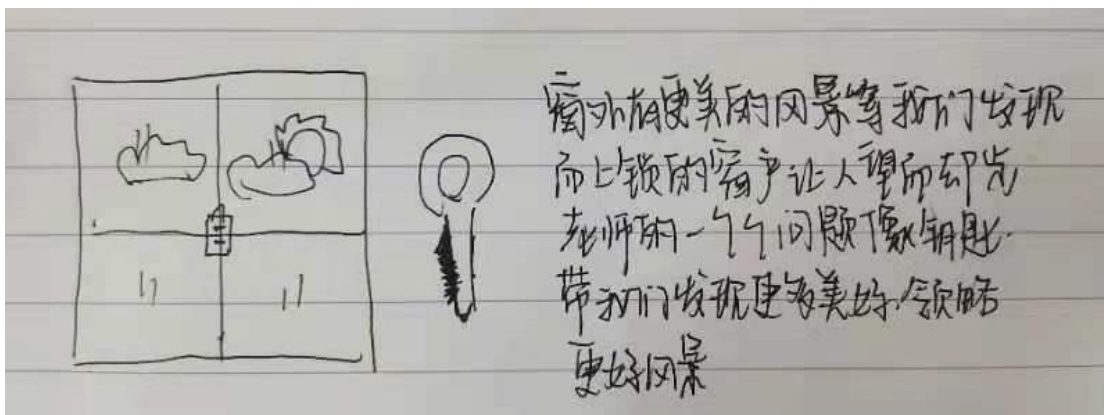 窗外有更美的风景等我们发现
而上锁的窗户让人望而却步
老师的一个个问题像钥匙.
带我们发现更多美好.领略
更好风景